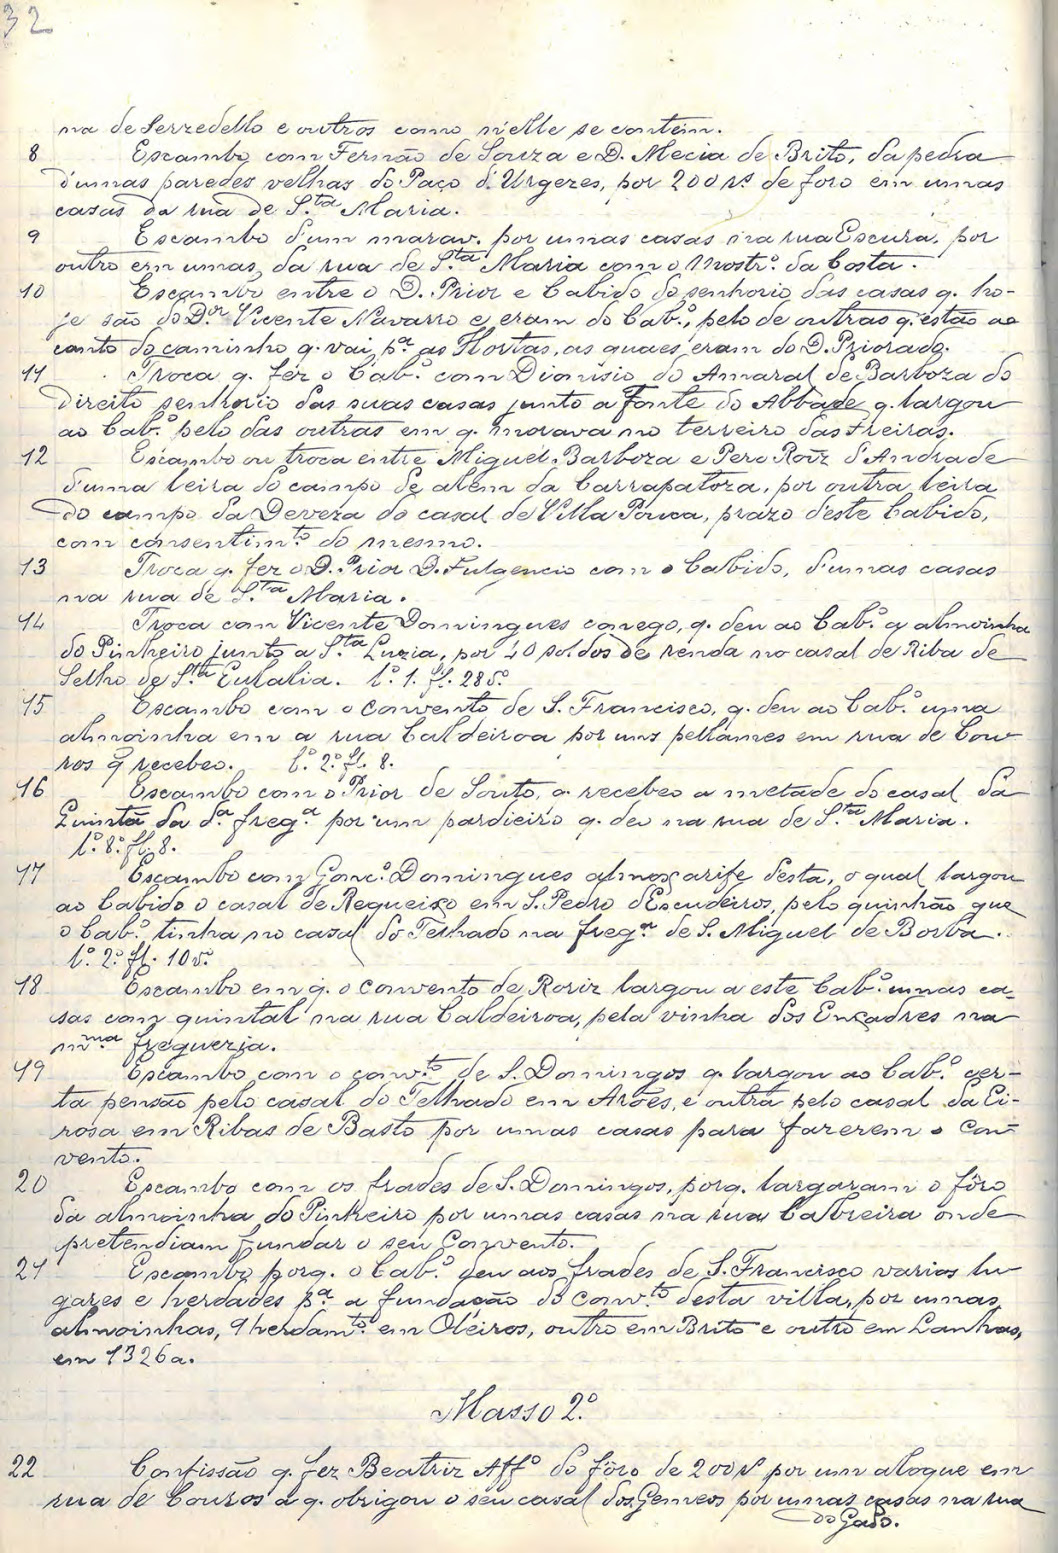 32
na de Serzedello e outros como n'elle se contém.
8 Escambo com Fernão de Souza e D. Mecia de Brito, da pedra
d'umas paredes velhas do Paço d'Urgezes, por 200 rs. de foro em umas
casas da rua de S.ta Maria.
9 Escambo d'um marav. por umas casas na rua Escura, por
outro em umas, da rua de S.ta Maria com o Mostr.o da Costa.
10 Escambo entre o D. Prior e Cabido do senhorio das casas q. ho-
je são do D.or Vicente Navarro e eram do Cab.o, pelo de outras q. estão ao
canto do caminho q. vai p.a as Hortas, as quaes eram do D. Priorado.
11 Troca q. fez o Cab.o com Dionisio do Amaral de Barboza do
direito senhorio das suas casas junto a Fonte do Abbade q. largou
ao Cab.o pelo das outras em q. morava no terreiro das Freiras.
12 Escambo ou troca entre Miguel Barboza e Pero Roiz d'Andrade
d'uma leira do campo de alem da Carrapatoza, por outra leira
do campo da Deveza do casal de Villa Pouca, prazo deste Cabido,
com consentim.to do mesmo.
13 Troca q. fez o D. Prior D. Fulgencio com o Cabido, d'umas casas
na rua de S.ta Maria.
14 Troca com Vicente Domingues conego, q. deu ao Cab.o a almoinha
do Pinheiro junto a S.ta Luzia, por 40 soldos de renda no casal de Riba de
Selho de S.ta Eulalia. l.o 1. fl. 28 v.o
15 Escambo com o Convento de S. Francisco, q. deu ao Cab.o uma
almoinha em a rua Caldeiroa por uns pellames em rua de Cou-
ros q̃ recebeo. l.o 2.o fl. 8.
16 Escambo com o Prior de Souto, q. recebeo a metade do casal da
Quintã da d.a freg.a por um pardieiro q. deo na rua de S.ta Maria.
l.o 8.o fl. 8.
17 Escambo com Gonc.o Domingues almoxarife desta, o qual largou
ao Cabido o casal de Requeixo em S. Pedro d'Escudeiros, pelo quinhão que
o Cab.o tinha no casal do Telhado na freg.a de S. Miguel de Borba.
l.o 2.o fl. 10 v.o
18 Escambo em q. o Convento de Roriz largou a este Cab.o umas ca-
sas com quintal na rua Caldeiroa, pela vinha dos Enxadres na
m.ma freguezia.
19 Escambo com o conv.to de S. Domingos q. largou ao Cab.o cer-
ta pensão pelo casal do Telhado em Arões, e outra pelo casal da Ei-
rosa em Ribas de Basto por umas casas para fazerem o Con-
vento.
20 Escambo com os frades de S. Domingos, porq. largaram o fôro
da almoinha do Pinheiro por umas casas na rua Cabreira onde
pretendiam fundar o seu Convento.
21 Escambo porq. o Cab.o deu aos frades de S. Francisco varios lu-
gares e herdades p.a a fundação do Conv.to desta villa, por umas
almoinhas, 9 herdam.tos em Oleiros, outro em Brito e outro em Lanhas,
em 1326 a.
Masso 2.o
22 Confissão q. fez Beatriz Aff.o do fôro de 200 rs por um aloque em
rua de Couros a q. obrigou o seu casal dos Gemeos por umas casas na rua
do Gado.